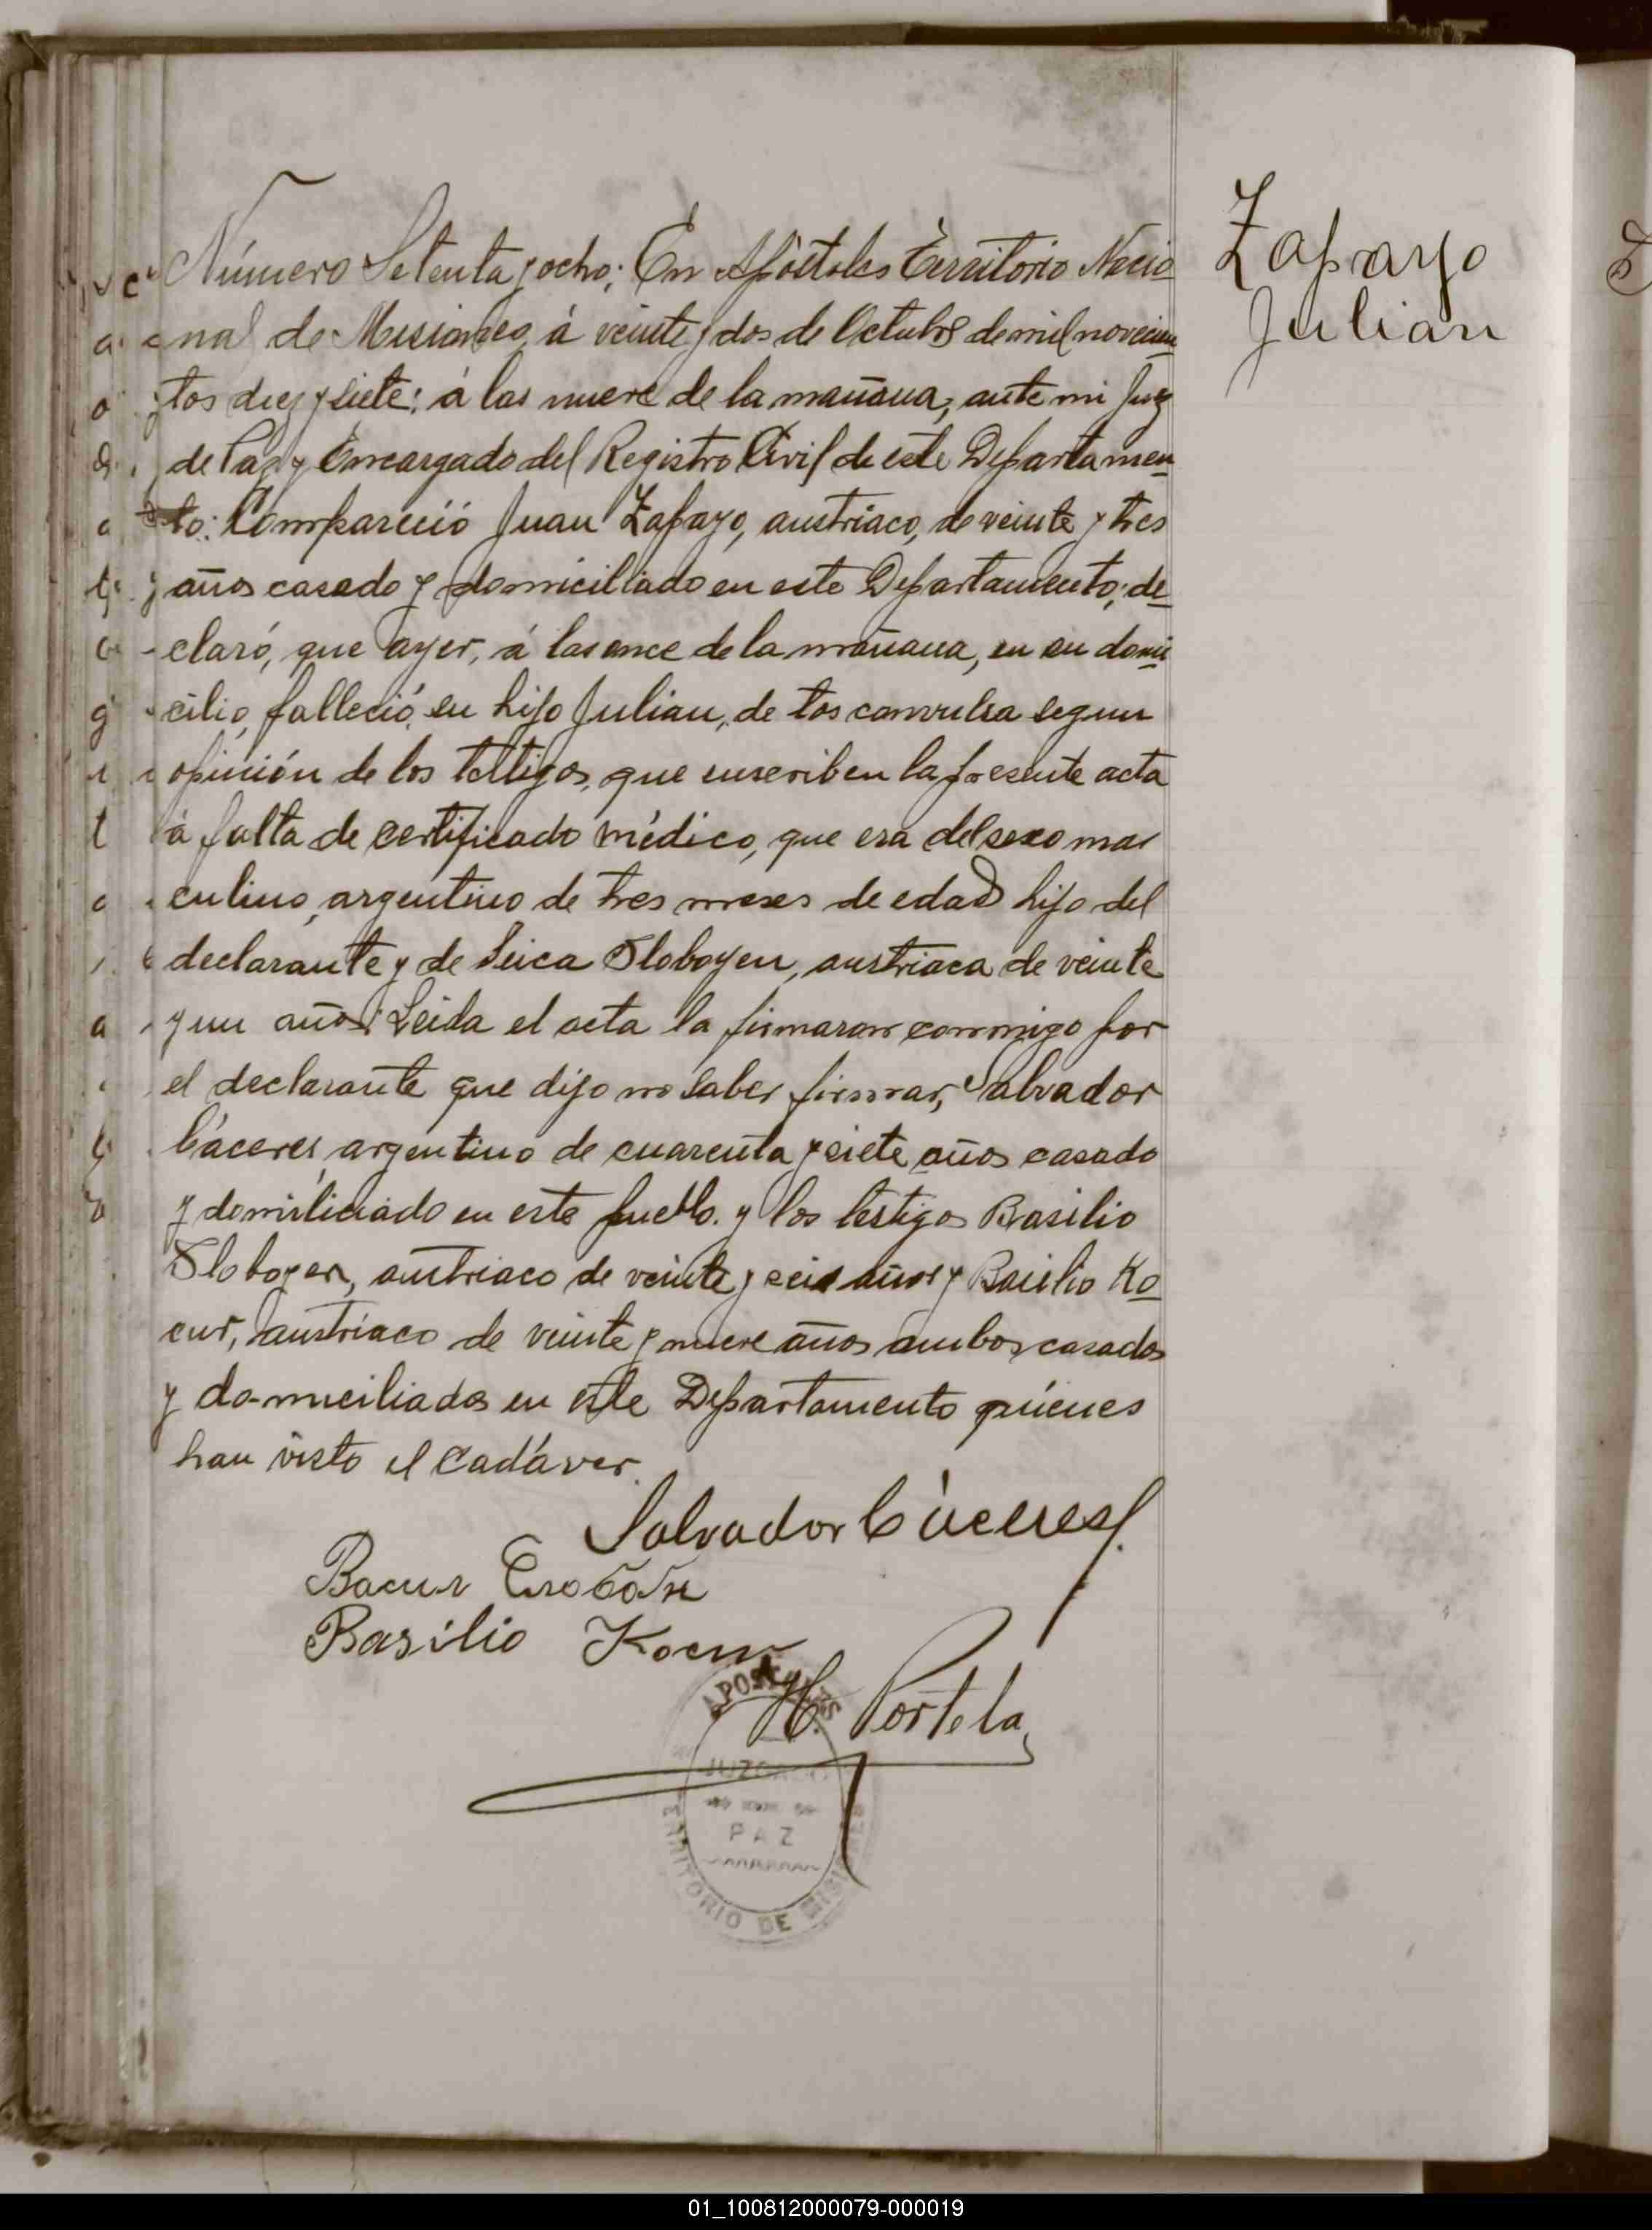 Zaparyo
Julian
Número Setenta y ocho: En Apóstoles Territorio Nacio
nal de Misiones, á veinte y dos de Octubre de mil novecien
tos diez y siete: á las nueve de la mañana, ante mi Juez
de Paz y Encargado del Registro Civil de este Departamen
to: Compareció Juan Zaparyo, austriaco, de veinte y tres
años casado y domiciliado en este Departamento; de
claró, que ayer, á las once de la mañana, en su domi
cilio, falleció, su hijo Julian, de tos convulsa segun
opinión de los testigos, que suscriben la presente acta
á falta de certificado médico, que era del sexo mas
culino, argentino de tres meses de edad hijo del
declarante y de Sloboyen, austriaca de veinte
y un años; Leida el acta la firmaron conmigo por
el declarante que dijo no saber firmar, Salvador
Cáceres, argentino de cuarenta y siete años casado
y domiliciado en este pueblo. y los testigos Basilio
Sloboyen, austriaco de veinte y seis años y Basilio Ko
cur, austriaco de veinte y nueve años ambos casados
y domiciliados en este Departamento quienes
han visto el cadáver.
Salvador Cáceres
Basilio Kocur
Portela
APOSTOLES
JUZGADO
DE
PAZ
TERRITORIO DE MISIONES
01_100812000079-000019